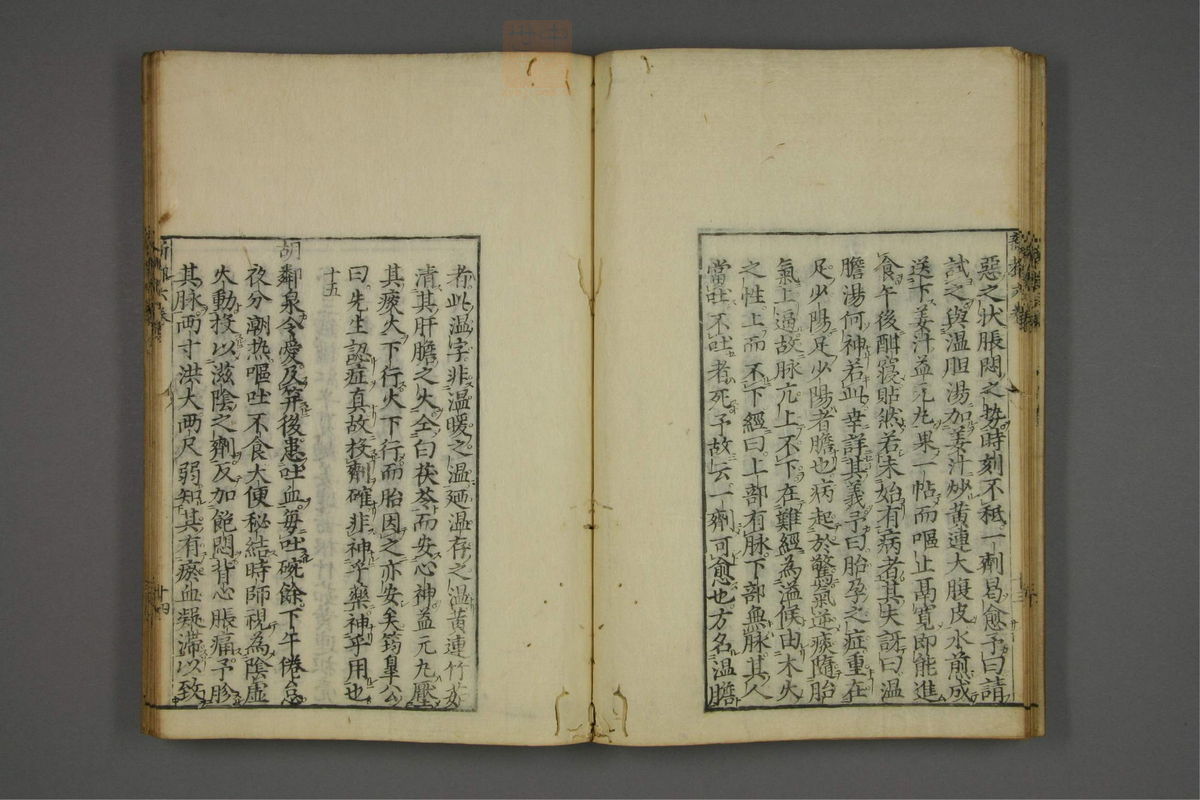 惡之狀脹悶之勢時刻不秪一劑曷愈予曰請
試之與温胆湯加姜汁炒黄連大腹皮水煎成
送下姜汁益元丸果一帖而嘔止鬲寬即能進
食午後酣寢貼然若未始有病者其夫訝曰温
膽湯何神若此幸詳其義予曰胎孕之症重在
足少陽足少陽者膽也病起於驚氣逆痰隨胎
氣上逼故脉亢上不下在難經為溢候由木火
之性上而不下經曰上部有脉下部無脉其人
當吐不吐者死予故云一劑可愈也方名温膽
者此温字非温暖之温廼温存之温黄連竹茹
清其肝膽之火仝白茯苓而安心神益元丸壓
其痰火下行火下行而胎因之亦安矣筠皐公
曰先生認症真故投劑確非神乎藥神乎用也
十五
胡鄰泉令愛及笄後患吐血每吐碗餘下午倦怠
夜分潮热嘔吐不食大便秘結時師視為陰虚
火動投以滋陰之劑反加飽悶背心脹痛予胗
其脉兩寸洪大兩尺弱知其有瘀血凝滯以致
廿四